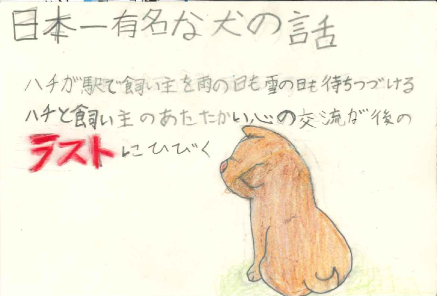 日本一有名な犬の話
ハチが駅で飼い主を雨の日も雪の日も待ちつづける
ハチと飼い主のあたたかい心の交流が後の
ラストにひびく